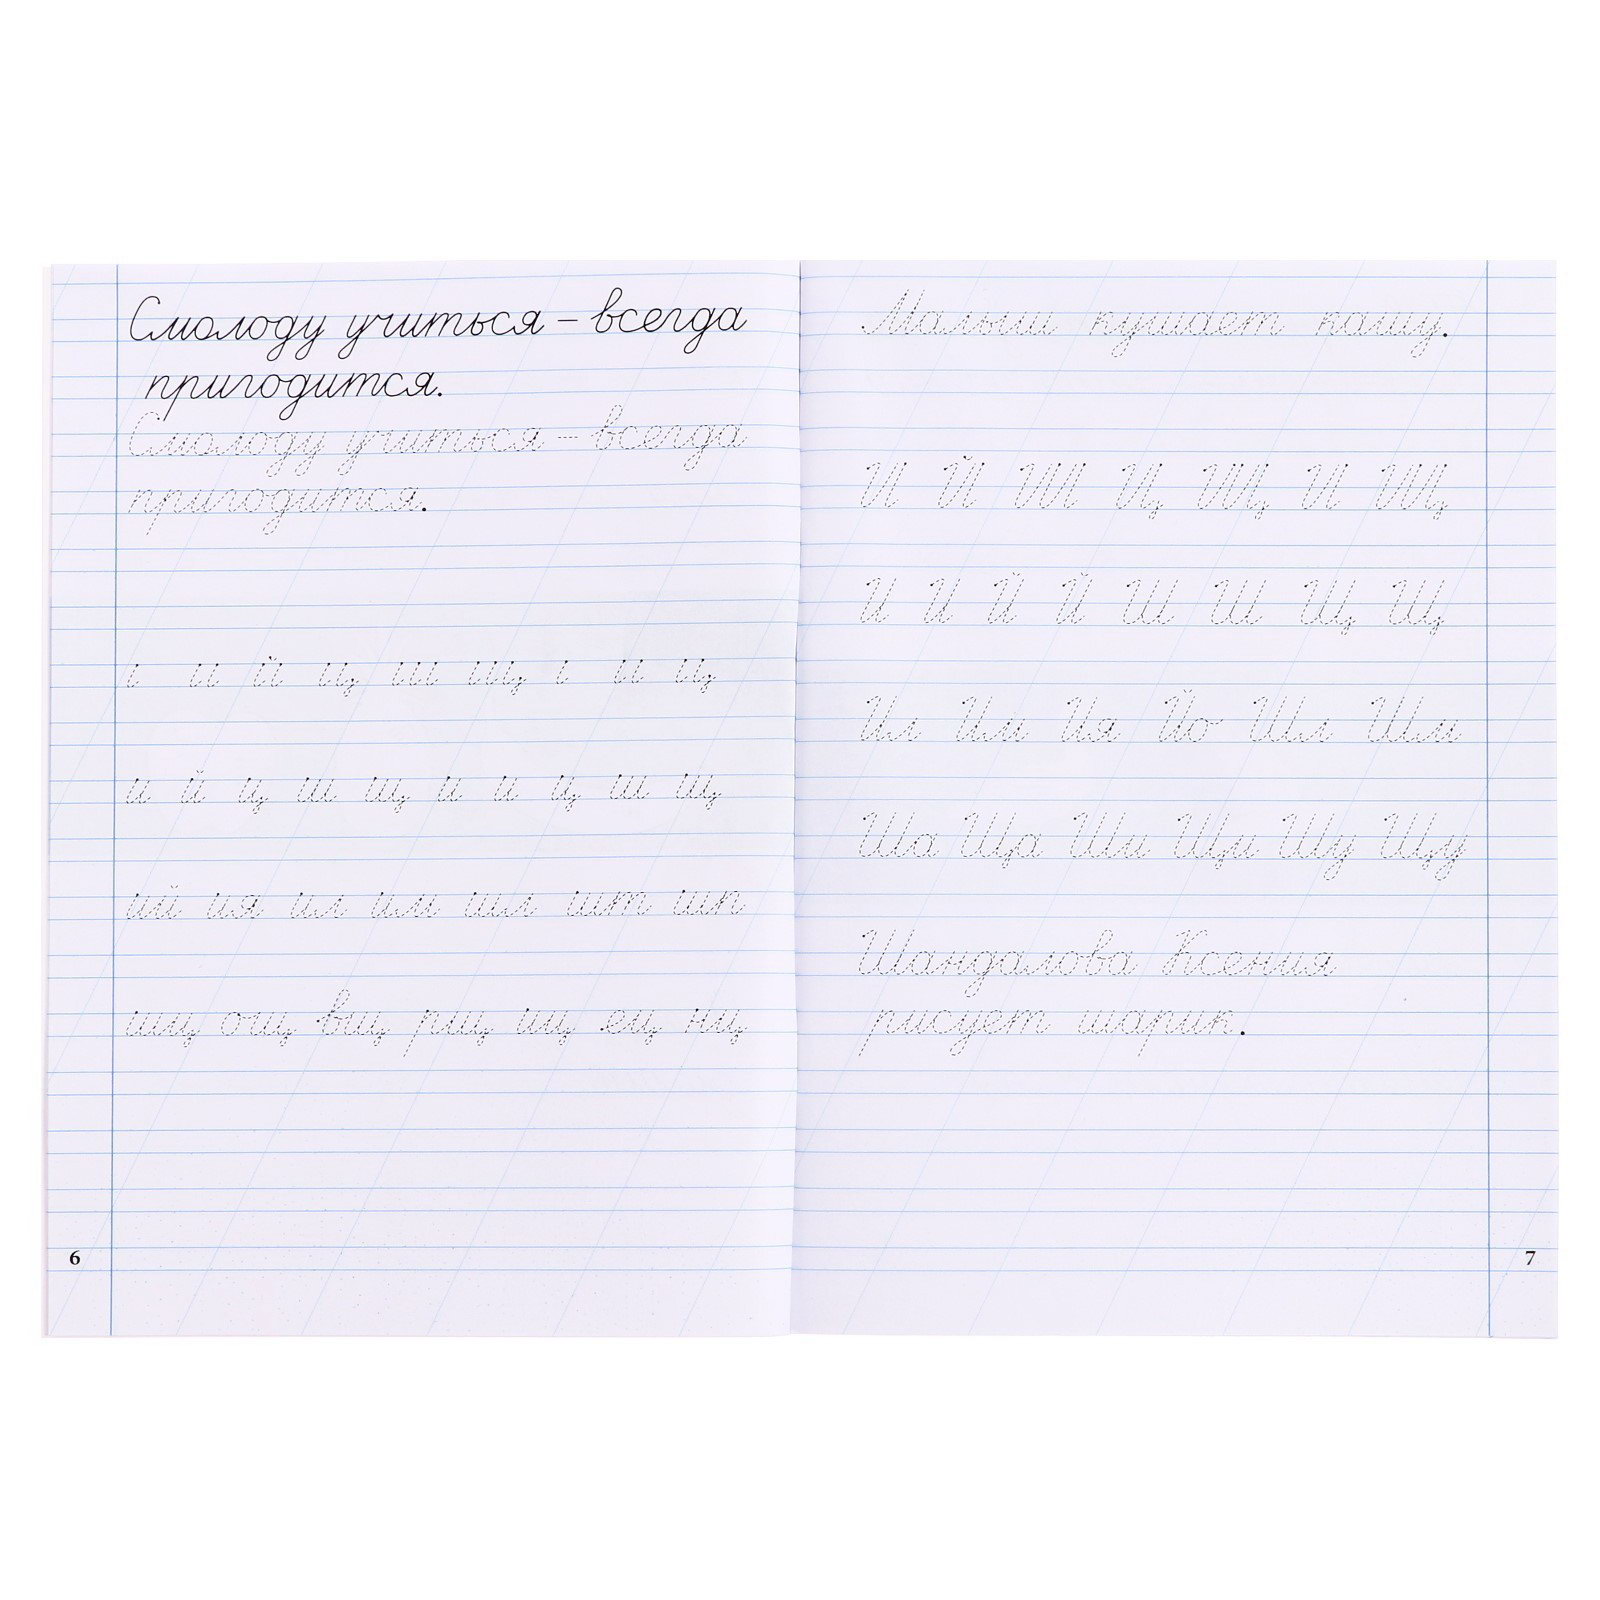 Смолоду учиться – всегда
пригодится.
Смолоду учиться – всегда
пригодится.
и й ц ш щ и ц
и й ц ш щ и и ц ш щ
ий ия ил им шл шт шп
шц ощ вщ рщ щ ец нц
6
Малыш кушает кашу.
И Й Ш Ц Щ И Щ
И И Й Й Ш Ш Щ Щ
Ил Им Ия Йо Шл Шм
Ша Ща Ши Щи Шу Щу
Шандалова Ксения
рисует шарик.
7